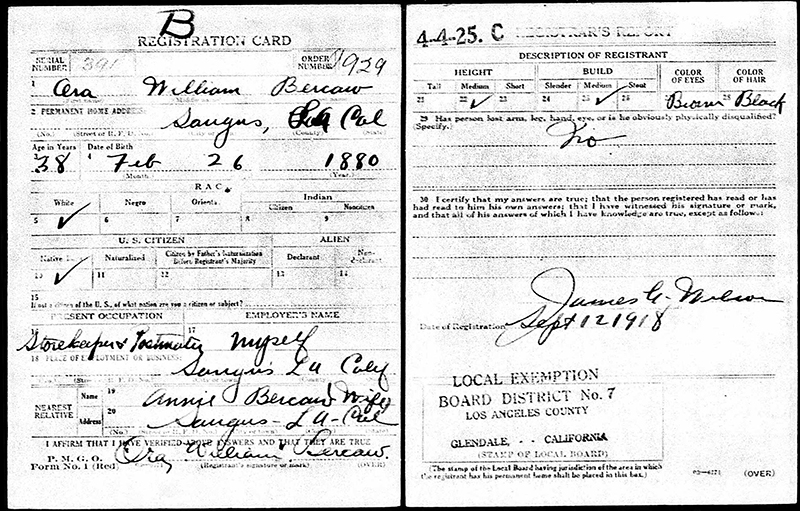 B
REGISTRATION CARD
SERIAL NUMBER 391 ORDER NUMBER 1929
1 Ora William Bercaw
2 PERMANENT HOME ADDRESS:
Saugus, LA Cal
(No.) (Street or R. F. D. No.) (City or town) (County) (State)
Age in Years Date of Birth
3 38 4 Feb 26 1880
(Month) (Year)
RACE
White Negro Oriental Indian
Citizen Noncitizen
5 ✓ 6 7 8 9
U. S. CITIZEN ALIEN
Native Born Naturalized Citizen by Father's Naturalization Before Registrant's Majority Declarant Non-declarant
10 ✓ 11 12 13 14
15
If not a citizen of the U. S., of what nation are you a citizen or subject?
PRESENT OCCUPATION EMPLOYER'S NAME
16 Storekeeper & Postmaster 17 Myself
18 PLACE OF EMPLOYMENT OR BUSINESS:
Saugus LA Caly
(No.) (Street or R. F. D. No.) (City or town) (County) (State)
NEAREST RELATIVE
Name 19 Annie Bercaw Wife
Address 20 Saugus - LA - Cal
(No.) (Street or R. F. D. No.) (City or town) (County) (State)
I AFFIRM THAT I HAVE VERIFIED ABOVE ANSWERS AND THAT THEY ARE TRUE
P. M. G. O.
Form No. 1 (Red) Ora William Bercaw
(Registrant's signature or mark) (OVER)
4-4-25. C REGISTRAR'S REPORT
DESCRIPTION OF REGISTRANT
HEIGHT BUILD COLOR OF EYES COLOR OF HAIR
Tall Medium Short Slender Medium Stout
21 22 ✓ 23 24 25 ✓ 26 27 Brown 28 Black
29 Has person lost arm, leg, hand, eye, or is he obviously physically disqualified?
(Specify.) No
30 I certify that my answers are true; that the person registered has read or has
had read to him his own answers; that I have witnessed his signature or mark,
and that all of his answers of which I have knowledge are true, except as follows:
James G. Wilson
Date of Registration Sept 12 1918
LOCAL EXEMPTION
BOARD DISTRICT No. 7
LOS ANGELES COUNTY
GLENDALE, - - CALIFORNIA
(STAMP OF LOCAL BOARD)
(The stamp of the Local Board having jurisdiction of the area in which
the registrant has his permanent home shall be placed in this box.)
(OVER)